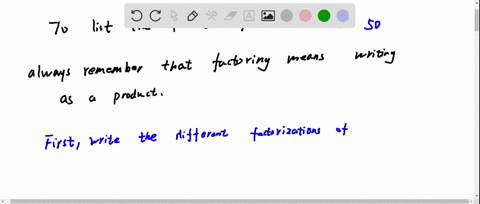 To list 50
always remember that factoring means writing
as a product.
First, write the different factorizations of